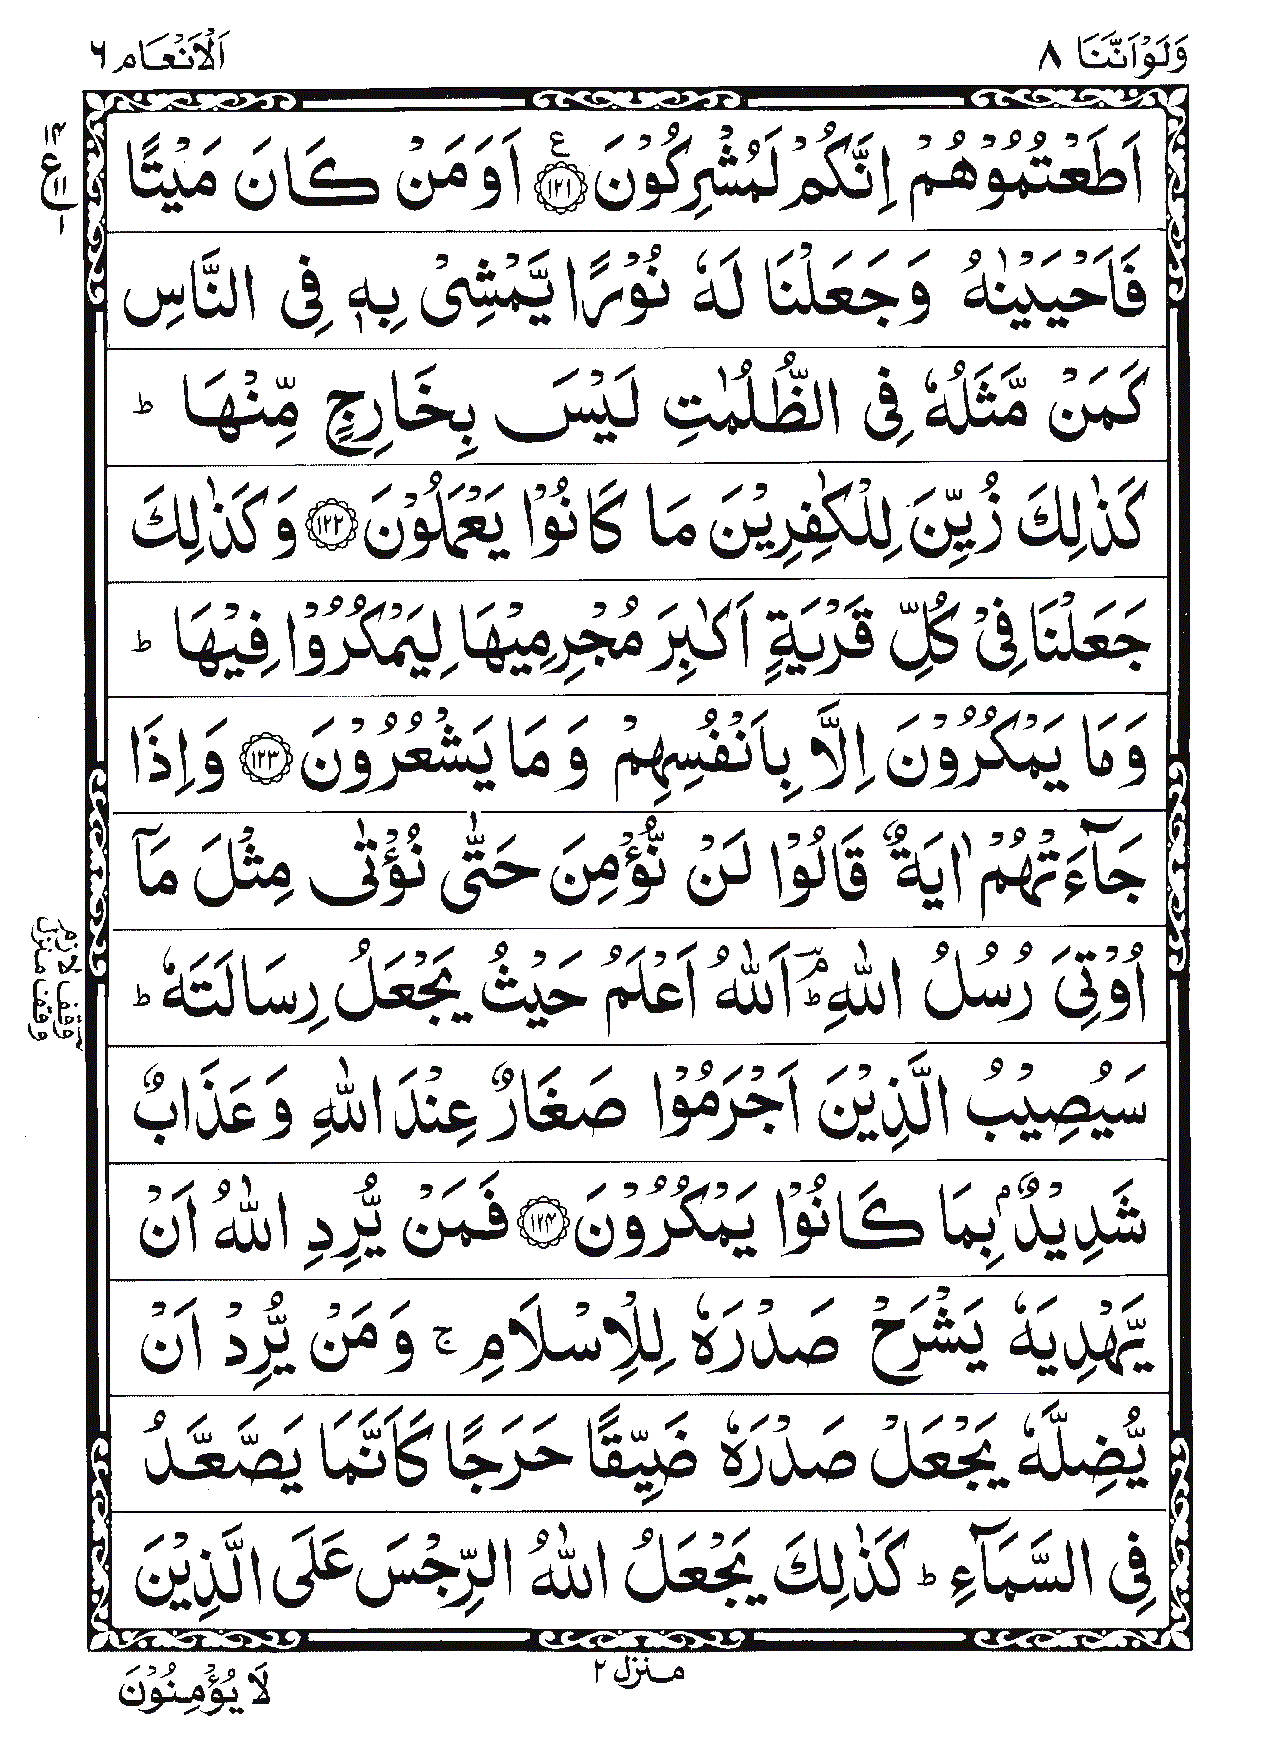 وَلَوْاَنَّنَا ٨
اَلْاَنْعَام ٦
١٤
ع
١١
١
اَطَعْتُمُوْهُمْ اِنَّكُمْ لَمُشْرِكُوْنَ ع ١٢١ اَوَمَنْ كَانَ مَيْتًا
فَاَحْيَيْنٰهُ وَجَعَلْنَا لَهٗ نُوْرًا يَّمْشِيْ بِهٖ فِى النَّاسِ
كَمَنْ مَّثَلُهٗ فِى الظُّلُمٰتِ لَيْسَ بِخَارِجٍ مِّنْهَا ط
كَذٰلِكَ زُيِّنَ لِلْكٰفِرِيْنَ مَا كَانُوْا يَعْمَلُوْنَ ١٢٢ وَكَذٰلِكَ
جَعَلْنَا فِيْ كُلِّ قَرْيَةٍ اَكٰبِرَ مُجْرِمِيْهَا لِيَمْكُرُوْا فِيْهَا ط
وَمَا يَمْكُرُوْنَ اِلَّا بِاَنْفُسِهِمْ وَمَا يَشْعُرُوْنَ ١٢٣ وَاِذَا
جَآءَتْهُمْ اٰيَةٌ قَالُوْا لَنْ نُّؤْمِنَ حَتّٰى نُؤْتٰى مِثْلَ مَآ
اُوْتِيَ رُسُلُ اللّٰهِ ؔۘ ط اَللّٰهُ اَعْلَمُ حَيْثُ يَجْعَلُ رِسَالَتَهٗ ط
سَيُصِيْبُ الَّذِيْنَ اَجْرَمُوْا صَغَارٌ عِنْدَ اللّٰهِ وَعَذَابٌ
شَدِيْدٌۢ بِمَا كَانُوْا يَمْكُرُوْنَ ١٢٤ فَمَنْ يُّرِدِ اللّٰهُ اَنْ
يَّهْدِيَهٗ يَشْرَحْ صَدْرَهٗ لِلْاِسْلَامِ ج وَمَنْ يُّرِدْ اَنْ
يُّضِلَّهٗ يَجْعَلْ صَدْرَهٗ ضَيِّقًا حَرَجًا كَاَنَّمَا يَصَّعَّدُ
فِى السَّمَآءِ ط كَذٰلِكَ يَجْعَلُ اللّٰهُ الرِّجْسَ عَلَى الَّذِيْنَ
وقف لازم
وقف منزل
منزل ٢
لَا يُؤْمِنُوْنَ